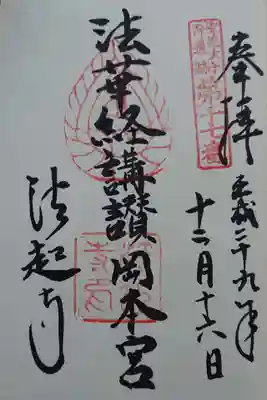 奉拝
第十七番
平成二十九年
十二月十六日
法華経講讃岡本宮
法起寺